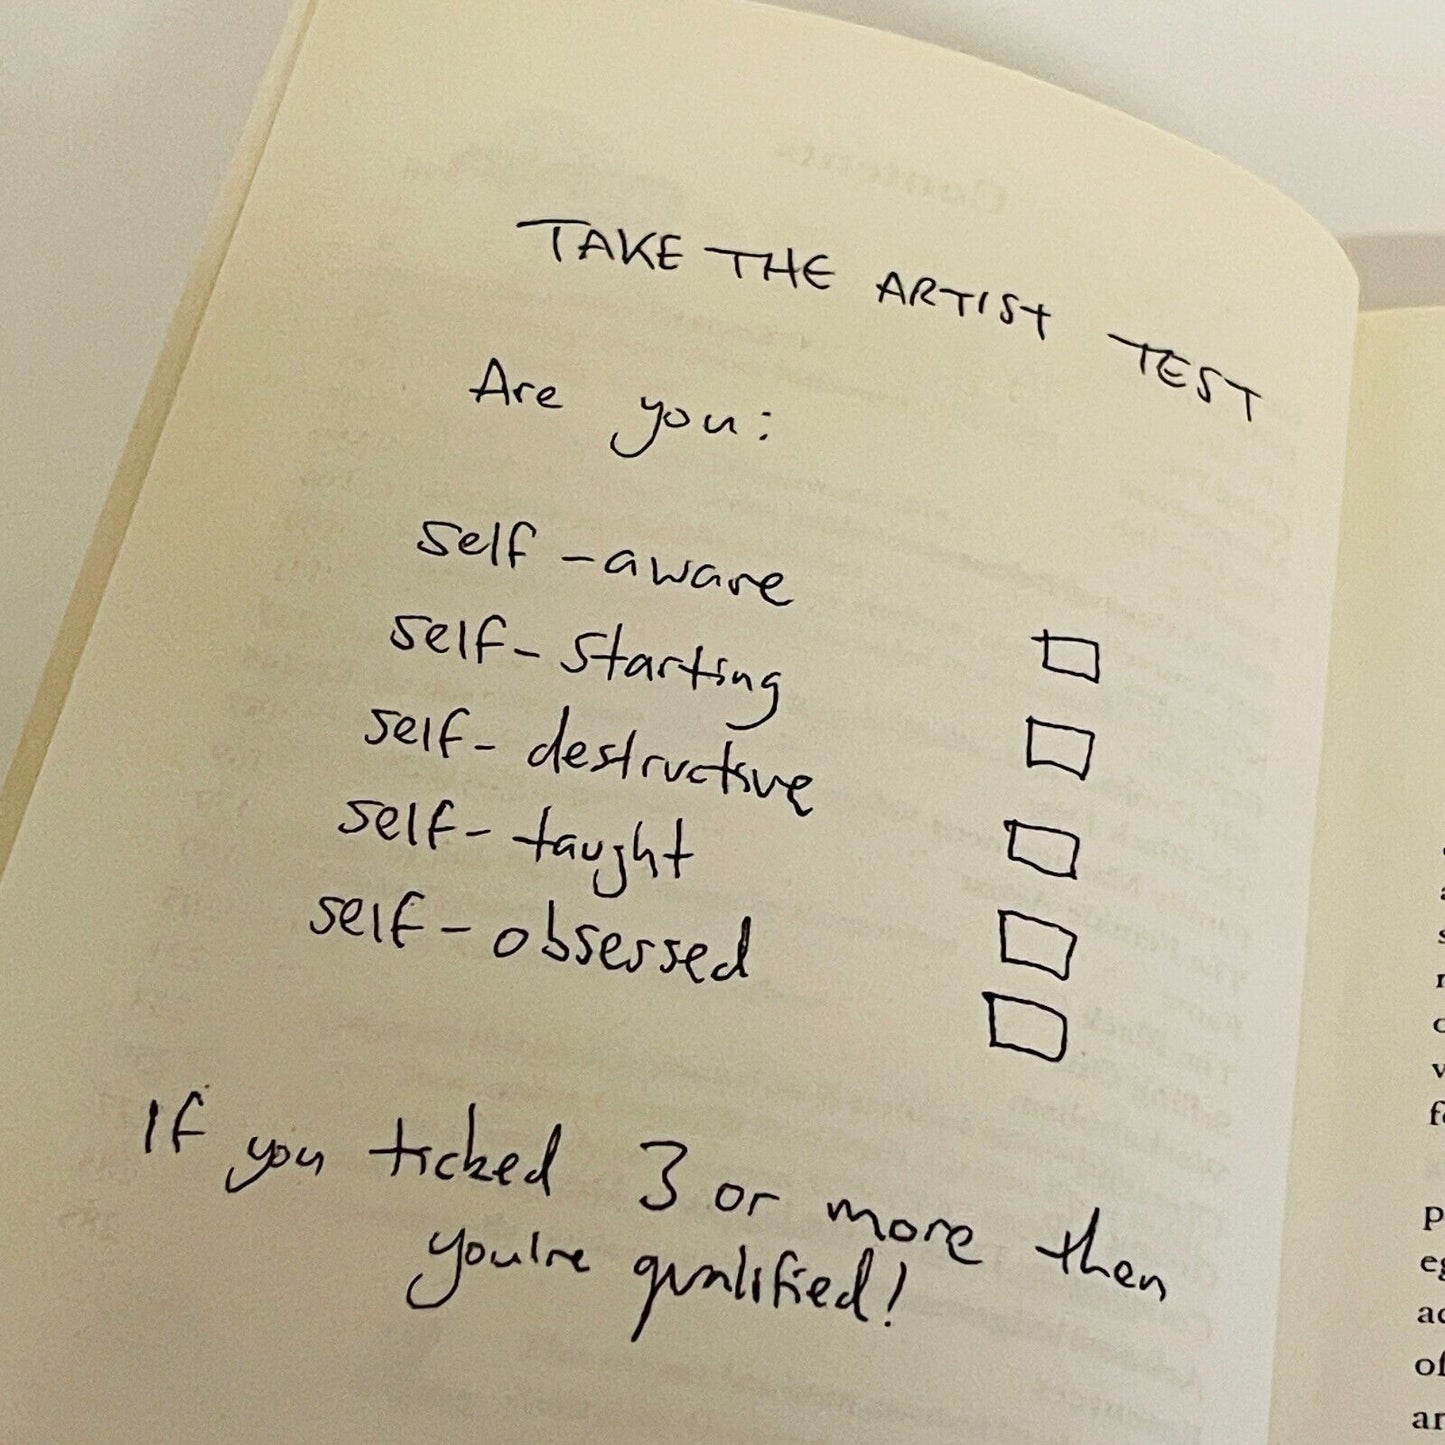 TAKE THE ARTIST TEST
Are you:
self-aware
self-starting
self-destructive
self-taught
self-obsessed
If you ticked 3 or more then
you're qualified!
p
eg
ac
of
ar